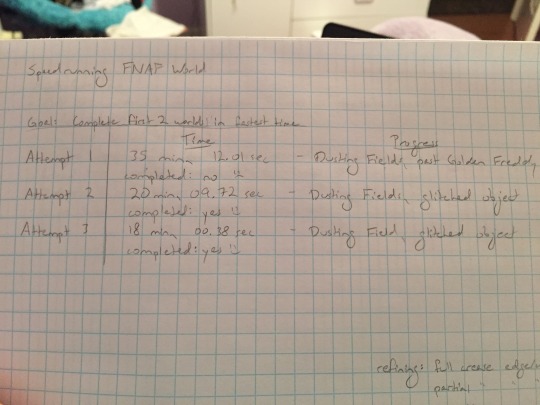 Speedrunning FNAF World
Goal: Complete first 2 worlds in fastest time
Time Progress
Attempt 1 35 min, 12.01 sec - Dusting Fields, past Golden Freddy
completed: no :(
Attempt 2 20 min, 09.72 sec - Dusting Fields, glitched object
completed: yes :)
Attempt 3 18 min, 00.38 sec - Dusting Field, glitched object
completed: yes :)
refining: full crease edge
partial " "